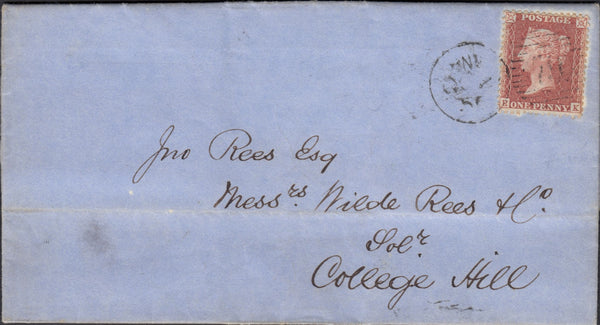 POSTAGE
ONE PENNY
Jno Rees Esq
Messrs. Wilde Rees & Co.
Solr
College Hill